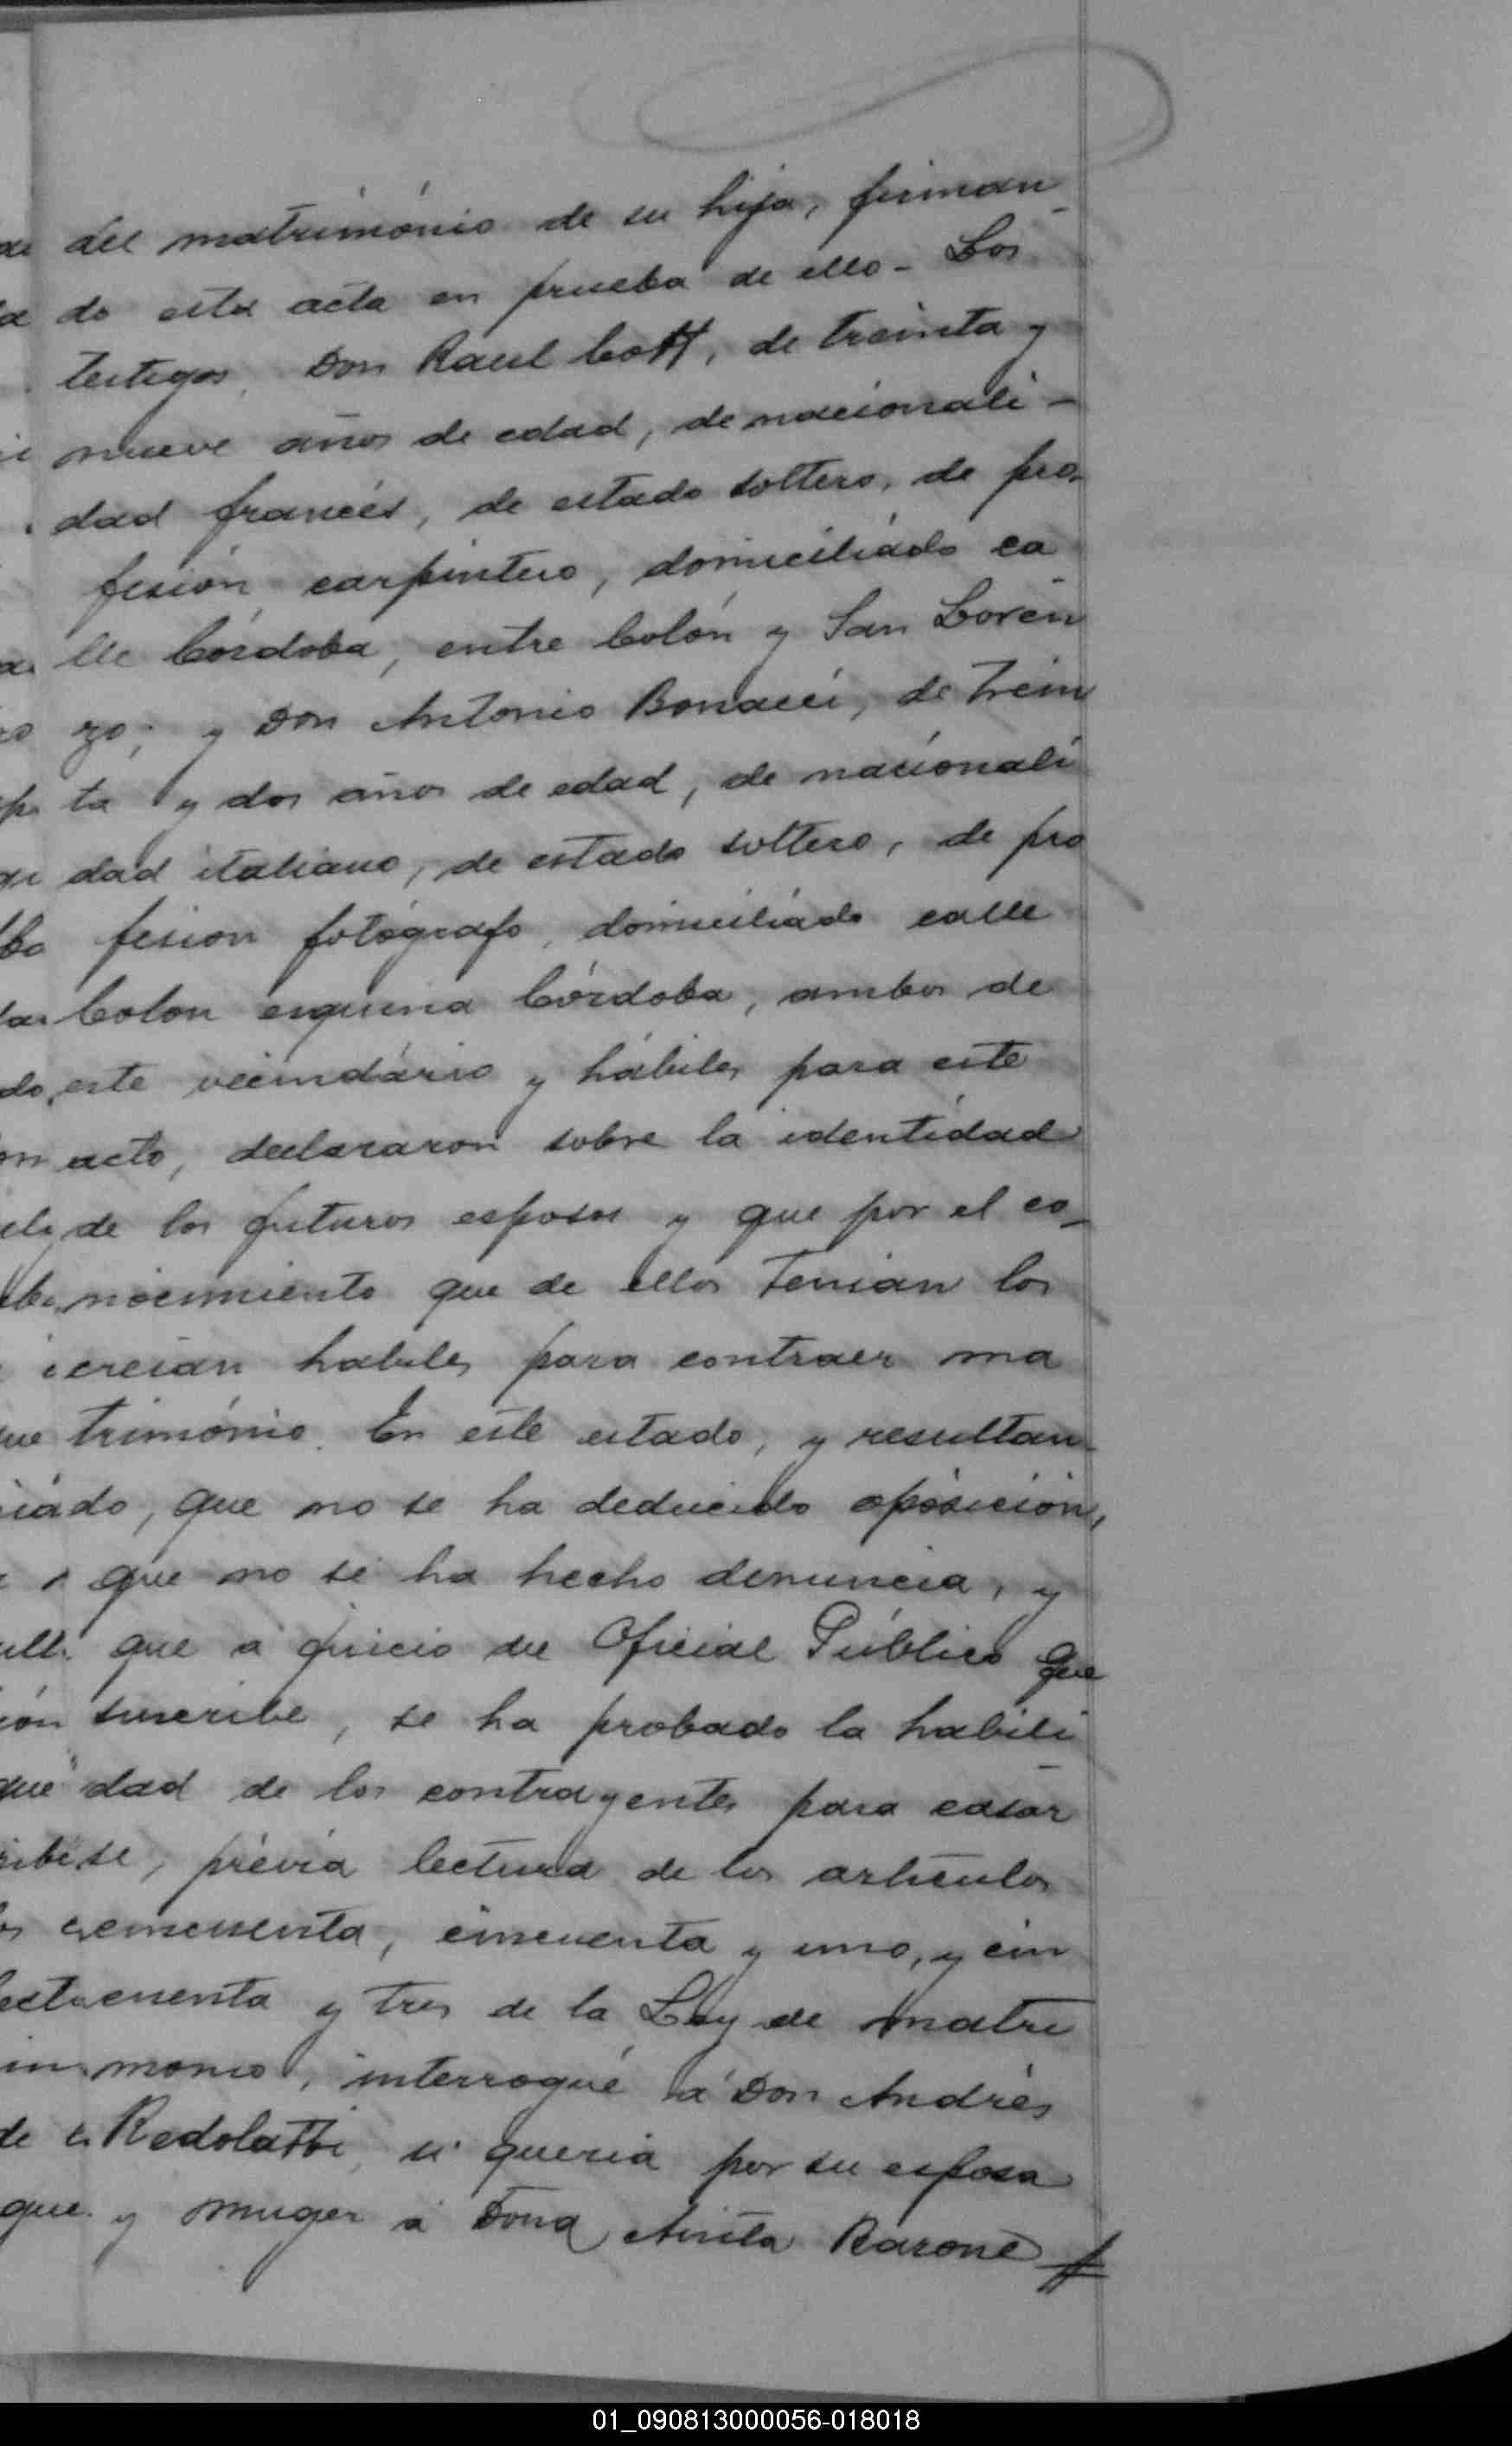 del matrimónio de su hija, firman
do esta acta en prueba de ello - Los
testigos, Don Raul Cott, de treinta y
nueve años de edad, de nacionali-
dad francés, de estado soltero, de pro-
fesión carpintero, domiciliádo ca-
lle Córdoba, entre Colón y San Loren
zo; y Don Antonio Bonacci, de trein
ta y dos años de edad, de nacionali
dad italiano, de estado soltero, de pro
fesion fotógrafo, domiciliado calle
Colon esquina Córdoba, ambos de
este vecindário y hábiles para este
acto, declararon sobre la identidad
de los futuros esposos y que por el co-
nocimiento que de ellos tenian los
creian habiles para contraer ma
trimónio. En este estado, y resultan-
do, que no se ha deducido oposición,
que no se ha hecho denuncia, y
que a juicio del Oficial Público que
suscribe, se ha probado la habili-
dad de los contrayentes para casar
se, prévia lectura de los artículos
cincuenta, cincuenta y uno, y cin
cuenta y tres de la Ley de matri
monio, interrogué á Don Andrés
Redolatti, si queria por su esposa
y muger a Dona Anita Barone
01_090813000056-018018